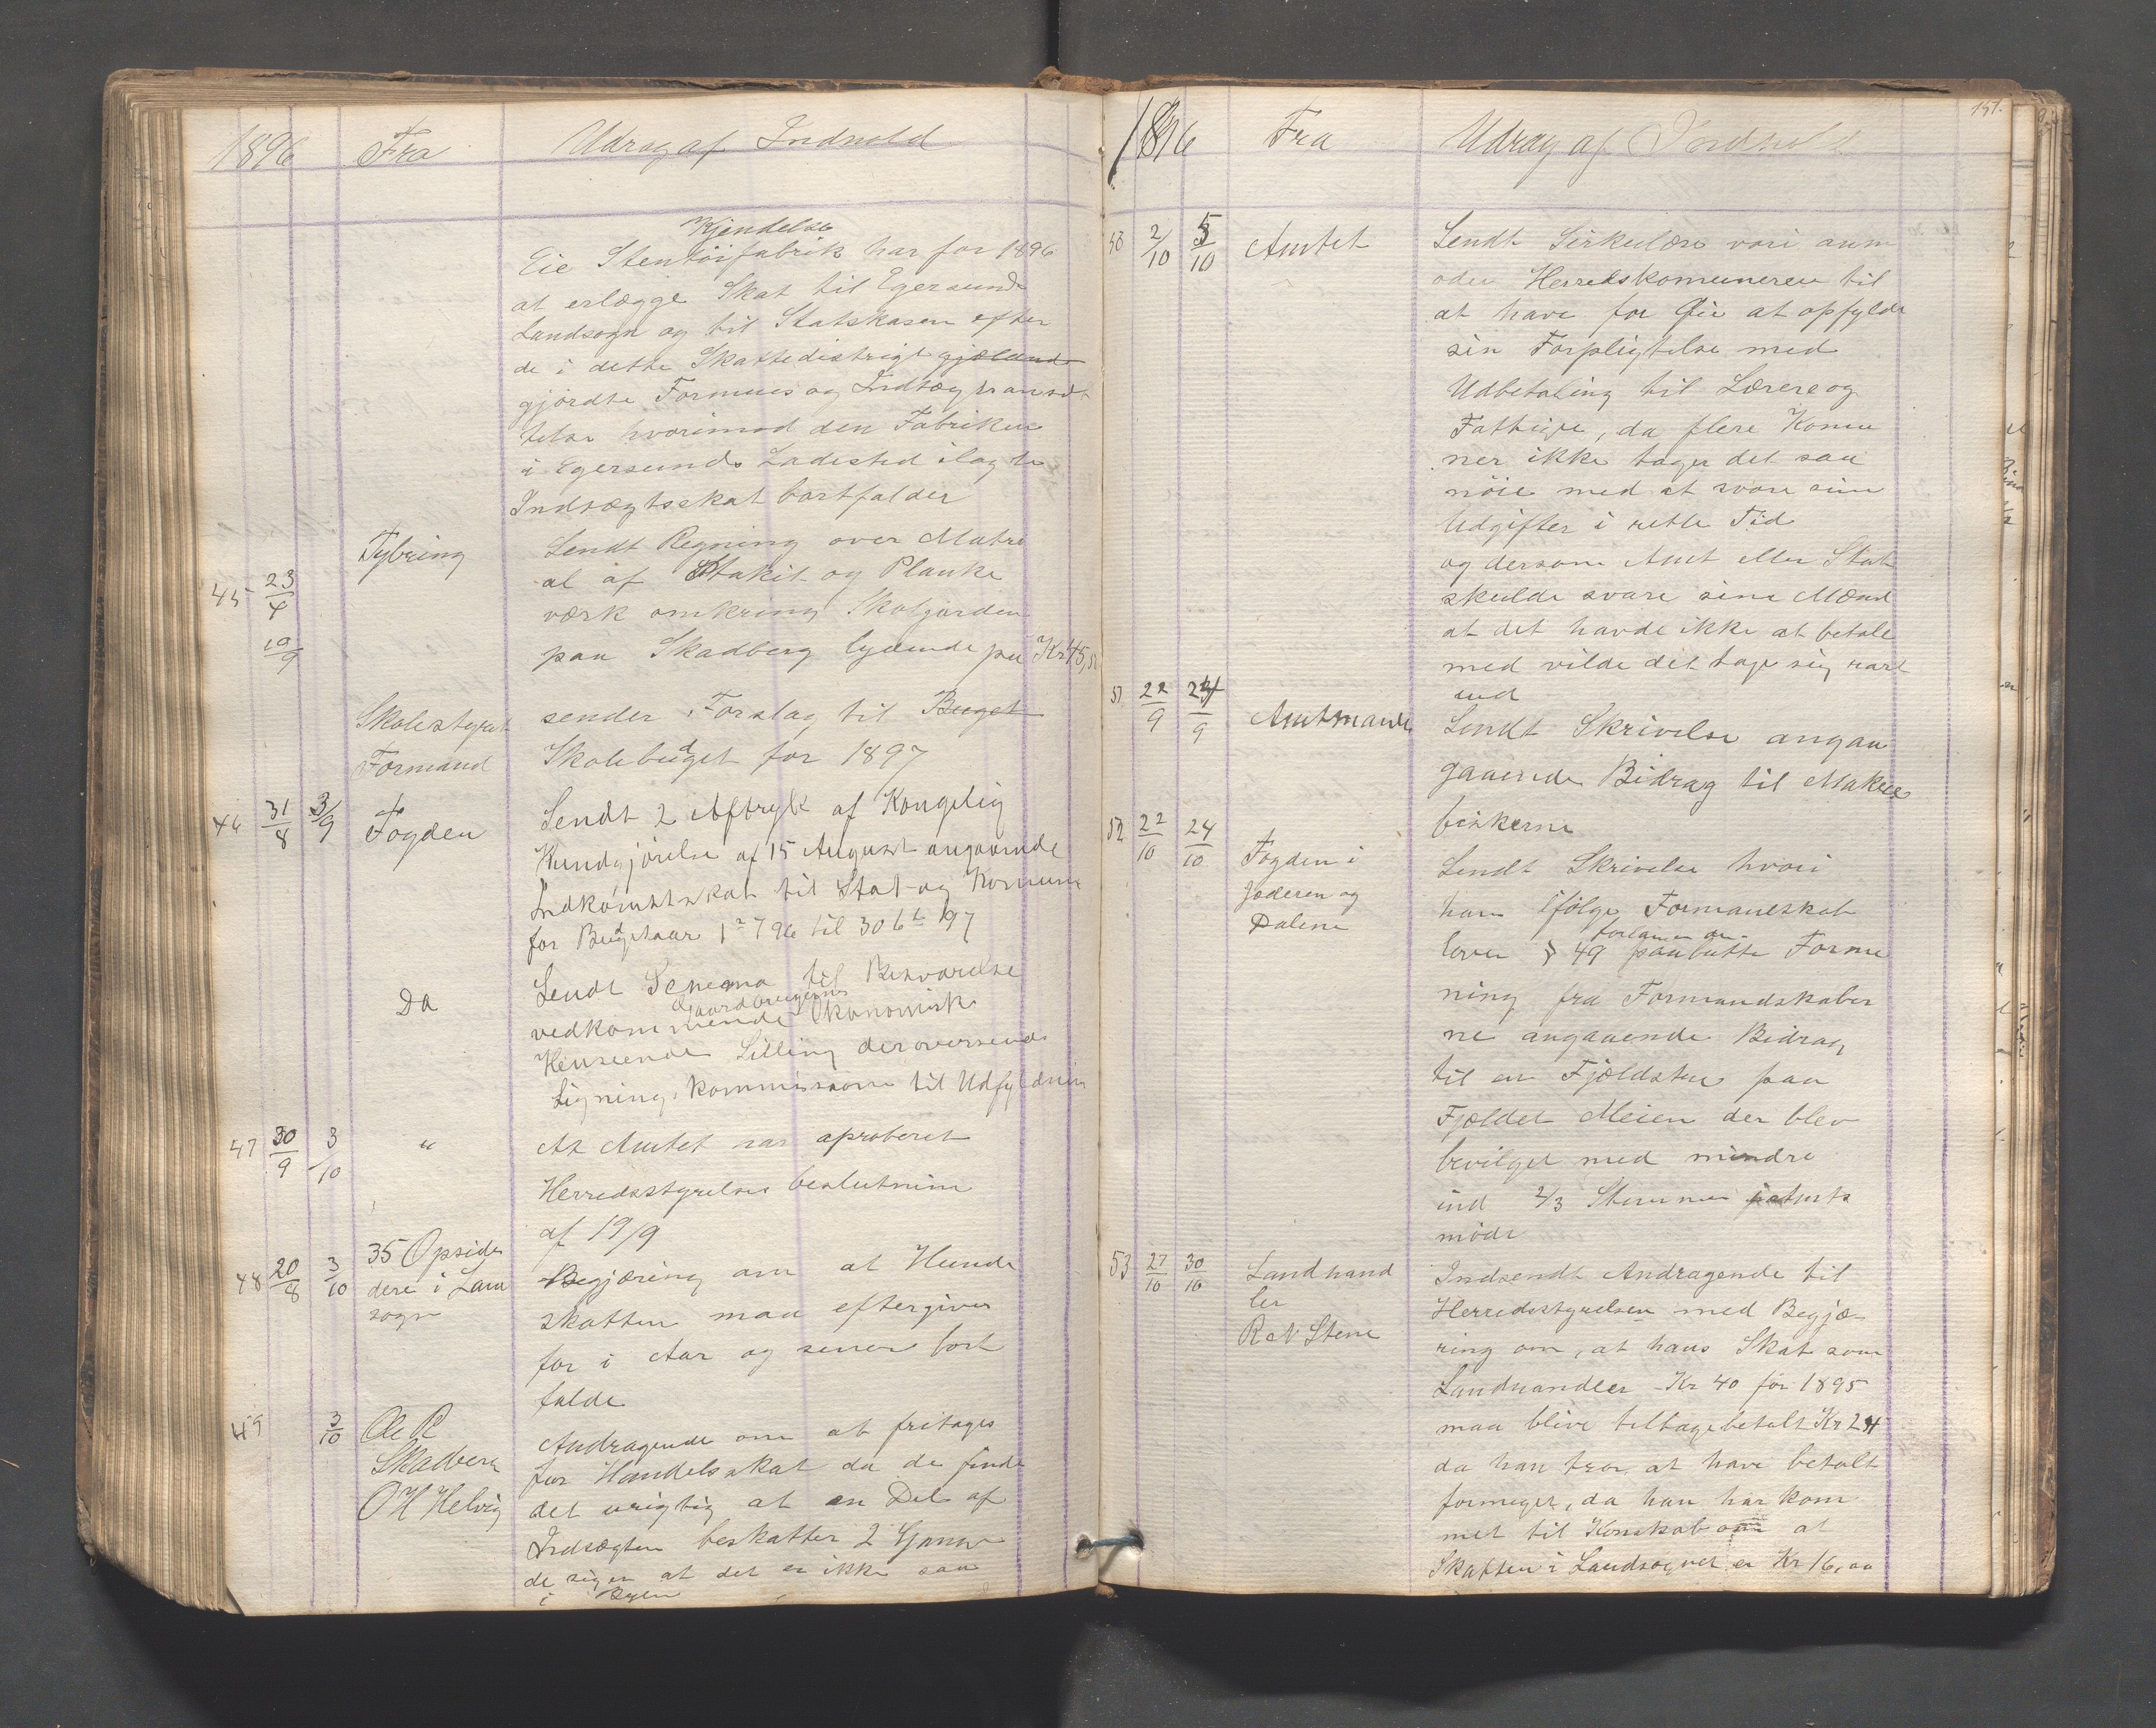 1896 Fra Udrag af Indhold
Kjendelse
Eie Stentöifabrik har for 1896
at erlægge Skat til Egersunds
Landsogn og til Statskasen efter
de i dette Skattedistrigt gjælland
gjordte Formues og Indtægtsansæt
telse hvorimod den Fabriken
i Egersunds Ladested ilagte
Indtægtsskat bortfalder
45 23/4 Tybring Sendt Regning over Matri
al af Stakit og Planke
værk omkring Skolgården
19/9 paa Skadberg lydende på Kr 45,
Skolestyret sender Forslag til Buget
Formand Skolebudget for 1897
46 31/8 3/9 Fogden Sendt 2 Aftryk af Kongelig
Kundgjörelse af 15 August angaaende
Indkomstskat til Stat og Komune
for Budgetaar 1 7 96 til 30 6 97
Da Sendt Schema til Besvarelse
Gaardbrugernes
vedkommende Økonomisk
Henseende Stilling der oversends
Lignings kommissionn til Udfyldning
47 30/9 3/10 " At Amtet har aproberet
Herredsstyrelses beslutning
af 19/9
48 20/8 3/10 35 Opsid
dere i Lan
sogn
Begjæring om at Hunde
skatten maa eftergives
for i Aar og senere bort
falde
49 3/10 Ole R
Skadberg
O H Helvig
Andragende om at fritages
for Handelsskat da de finde
det urigtig at en Del af
Indtægten beskattes 2 Gange
de siger at det er ikke saa
i Byen
151.
1896 Fra Udrag af Indhold
50 2/10 5/10 Amtet Sendt Sirkulære vori anm
oder Herredskomuneren til
at have for Öie at opfylde
sin Forpligtelse med
Udbetaling til Lærere og
Fattige, da flere Komu
ner ikke tager det saa
nöie med at svare sine
Udgifter i rette Tid
og dersom Amt eller Stat
skulde svare sine Mænd
at det havde ikke at betale
med vilde det tage sig rart
ud
51 22/9 24/9 Amtmanden Sendt Skrivelse angaa
gaaende Bidrag til Makrel
fiskerne
52 22/10 24/10 Fogden i
Jæderen og
Dalene
Sendt Skrivelse hvori
han ifölge Formandskab
loven § 49 paabutte Forme
ning fra Formandskaber
ne angaaende Bidrag
til en Fjældstue paa
Fjældet Meien der blev
bevilget med mindre
end 2/3 Stemmer paa Amts
möde
53 27/10 30/10 Landhand
ler
R N Stene
Indsendt Andragende til
Herredsstyrelsen med Begjæ-
ring om, at hans Skat som
Landhandler Kr 40 för 1895
maa blive tilbagebetalt Kr 24
da han tror at have betalt
formeget, da han har kom
met til Konskab om at
Skatten i Landsognet er Kr 16,00